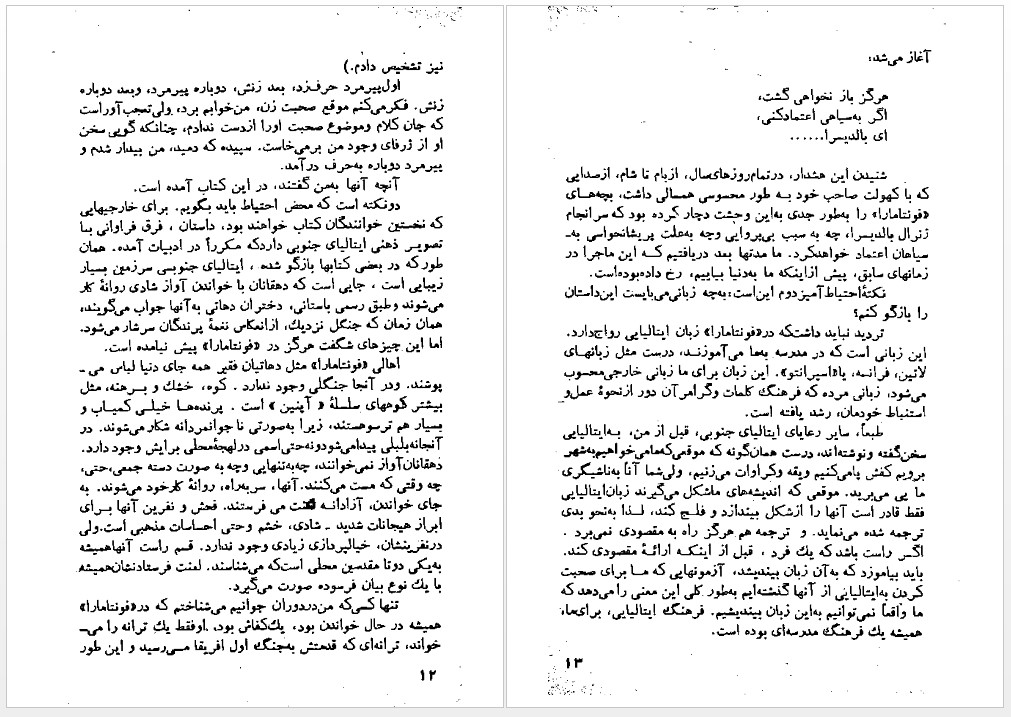 نیز تشخیص دادم.)
اول پیرمرد حرف‌زد، بعد زنش، دوباره پیرمرد، وبعد دوباره
زنش. فکرمی‌کنم موقع صحبت زن، من‌خوابم برد، ولی‌تعجب‌آوراست
که جان کلام وموضوع صحبت اورا ازدست ندادم، چنانکه گویی سخن
او از ژرفای وجود من برمی‌خاست. سپیده که دمید، من بیدار شدم و
پیرمرد دوباره به‌حرف درآمد.
آنچه آنها به‌من‌گفتند، در این کتاب آمده است.
دونکته است که محض احتیاط باید بگویم. برای خارجیهایی
که نخستین خوانندگان کتاب خواهند بود، داستان ، فرق فراوانی بـا
تصویـر ذهنی ایتالیای جنوبی داردکه مکرراً در ادبیات آمده. همان
طورکه در بعضی کتابها بازگو شده ، ایتالیای جنوبی سرزمین بسیار
زیبایی است ، جایی است که دهقانان با خواندن آواز شادی روانهٔ کار
می‌شوند وطبق رسمی باستانی، دختران دهاتی به‌آنها جواب می‌گویند،
همان زمان که جنگل نزدیك، ازانعکاس نغمهٔ پرندگان سرشار می‌شود.
اما این چیزهای شگفت هرگز در «فونتامارا» پیش نیامده است.
اهالی «فونتامارا» مثل دهاتیان فقیر همه جای دنیا لباس می ـ
پوشند. ودر آنجا جنگلی وجود ندارد . کوه، خشك و برهنه، مثل
بیشتر کوههای سلسلهٔ « آپنین » است . پرنده‌هـا خیلـی کمیاب و
بسیار هم ترسوهستند، زیرا به‌صورتی ناجوانمردانه شکار می‌شوند. در
آنجانه‌بلبلی پیدامی‌شودونه‌حتی‌اسمی درلهجهٔ‌محلی برایش وجود دارد.
دهقانان‌آواز نمی‌خوانند، چه‌به‌تنهایی وچه به صورت دسته جمعی،حتی،
چه وقتی که مست می‌کنند.آنها، سربه‌راه، روانهٔ کارخود می‌شوند. به
جای خواندن، آزادانـه می فرستند. فحش و نفرین آنها بـرای
ابراز هیجانات شدید ـ شادی، خشم وحتی احساسات مذهبی است.ولی
درنفرینشان، خیالپردازی زیادی وجود ندارد. قسم راست آنهاهمیشه
به‌یکی دوتا مقدسین محلی است‌که می‌شناسند. لعنت فرستادنشان‌همیشه
با یك نوع بیان فرسوده صورت می‌گیرد.
تنها کسی‌که من‌دردوران جوانیم می‌شناختم که در«فونتامارا»
همیشه در حال خواندن بود، یك‌کفاش بود. اوفقط یك ترانه را می‌ـ
خواند، ترانه‌ای که قدمتش به‌جنگ اول آفریقا مـی‌رسید و این طور
۱۲
آغاز می‌شد:
هرگز باز نخواهی گشت،
اگر به‌سیاهی اعتمادکنی،
ای بالدیسرا......
شنیدن این هشدار، درتمام‌روزهای‌سال، ازبام تا شام، ازصدایی
که با کهولت صاحب خود بـه طور محسوسی همسالی داشت، بچه‌هـای
«فونتامارا» را به‌طور جدی به‌این وحشت دچار کرده بود که سرانجام
ژنرال بالدیسرا، چه به سبب بی‌پروایی وچه به‌علت پریشانحواسی به‌ـ
سیاهان اعتماد خواهدکرد. ما مدتها بعد دریافتیم کـه این ماجرا در
زمانهای سابق، پیش ازاینکه ما به‌دنیا بیاییم، رخ داده‌بوده‌است.
نکتهٔ‌احتیاط‌آمیزدوم این‌است:به‌چه زبانی‌می‌بایست این‌داستان
را بازگو کنم؟
تردید نباید داشت‌که در«فونتامارا» زبان ایتالیایی رواج‌دارد.
این زبانی است که در مدرسه به‌ما می‌آموزنـد، درست مثل زبانهـای
لاتین، فرانسه، یا«اسپرانتو». این زبان برای ما زبانی خارجی‌محسوب
می‌شود، زبانی مرده که فرهنگ کلمات وگرامرآن دور ازنحوهٔ عمل‌و
استنباط خودمان، رشد یافته است.
طبعاً، سایر رعایای ایتالیای جنوبی، قبل از من، بـه‌ایتالیایی
سخن‌گفته ونوشته‌اند، درست همان‌گونه که موقعی‌که‌مامی‌خواهیم‌به‌شهر
برویم کفش پامی‌کنیم ویقه وکراوات می‌زنیم، ولی‌شما آناً به‌ناشیگری
ما پی می‌برید. موقعی که اندیشه‌های ماشکل می‌گیرند زبان‌ایتالیایی
فقط قادر است آنها را ازشکل بیندازد و فلـج کند، لـذا به‌نحو بدی
ترجمه شده می‌نماید. و ترجمه هم هرگز راه به مقصودی نمی‌برد .
اگـر راست باشد که یك فرد ، قبل از اینکـه ارائـهٔ مقصودی کند،
باید بیاموزد که به‌آن زبان بیندیشد، آزمونهایی که مـا برای صحبت
کردن به‌ایتالیایی از آنها گذشته‌ایم به‌طور کلی این معنی را می‌دهد که
ما واقعاً نمی‌توانیم به‌این زبان بیندیشیم. فرهنگ ایتالیایی، برای‌ما،
همیشه یك فرهنگ مدرسه‌ای بوده است.
۱۳